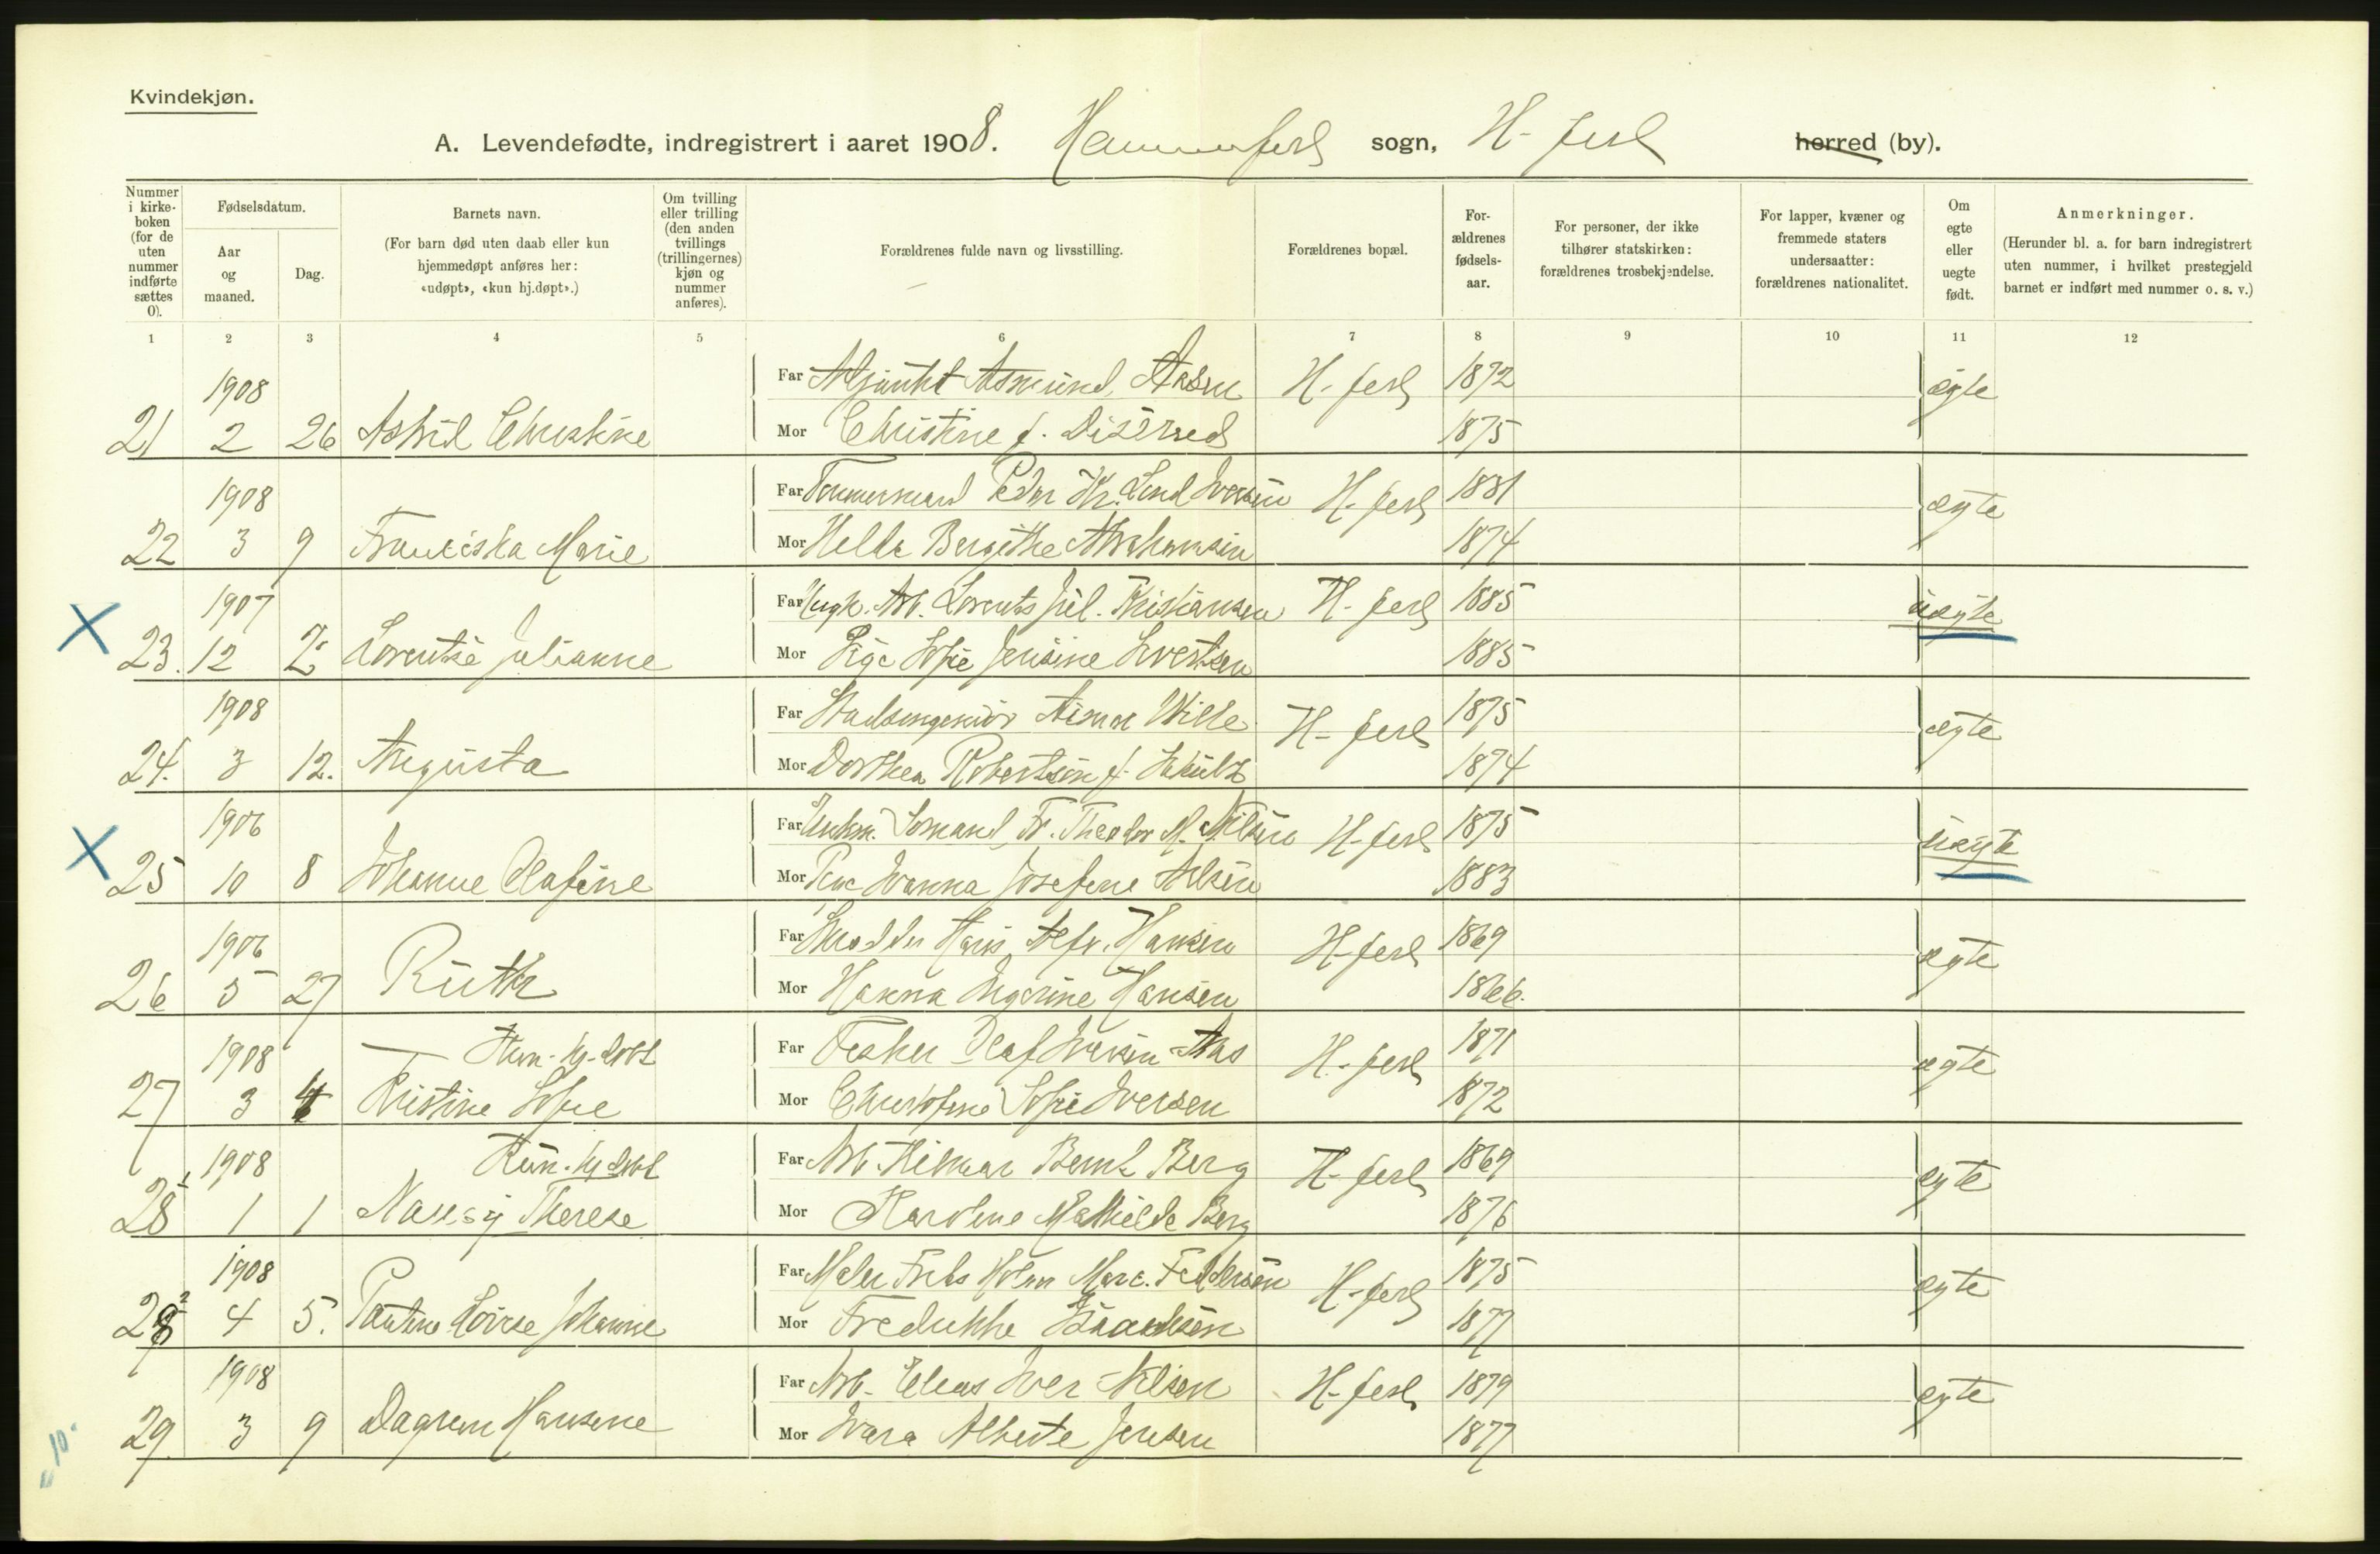 Kvindekjøn.
A. Levendefødte, indregistrert i aaret 1908. Hammerfest sogn, H-fest herred (by).
Nummer i kirke-boken (for de uten nummer indførte sættes 0).
Fødselsdatum.
Aar og maaned.
Dag.
Barnets navn.
(For barn død uten daab eller kun hjemmedøpt anføres her: «udøpt», «kun hj.døpt».)
Om tvilling eller trilling (den anden tvillings (trillingernes) kjøn og nummer anføres).
Forældrenes fulde navn og livsstilling.
Forældrenes bopæl.
For-ældrenes fødsels-aar.
For personer, der ikke tilhører statskirken: forældrenes trosbekjendelse.
For lapper, kvæner og fremmede staters undersaatter: forældrenes nationalitet.
Om egte eller uegte født.
Anmerkninger.
(Herunder bl. a. for barn indregistrert uten nummer, i hvilket prestegjeld barnet er indført med nummer o. s. v.)
1 2 3 4 5 6 7 8 9 10 11 12
1908 Far Asmund Aasen H-fest 1872 ægte
21 2 26 Astrid Christine Mor Christine f. 1875
1908 Far Tømmermand Peder Kr. Lind Iversen H-fest 1881 ægte
22 3 9 Franciska Marie Mor Helda Bergithe Abrahamsen 1874
1907 Far Ungk. Arb. Lorents Jul. Kristiansen H-fest 1885 uægte
23. 12 2 Lorentse Julianne Mor Pige Sofie Jensine Sivertsen 1885
1908 Far Stadsingeniør Wille H-fest 1875 ægte
24. 3 12. Augusta Mor Dorthea Robertson f. Schultz 1874
1906 Far Sømand Fr. Theodor M. Nilsen H-fest 1875 uægte
25 10 8 Johanne Olafine Mor Pige Ivanna Josefine Nilsen 1883
1906 Far Snedker Hans Alfr. Hansen H-fest 1869 ægte
26 5 27 Ruth Mor Hanna Ingerine Hansen 1866.
1908 Kun-hj-døbt Far Fisker Olaf Iversen Aas H-fest 1871 ægte
27 3 4 Kristine Sofie Mor Sofie Iversen 1872
1908 Kun-hj døbt Far Arb. Hilmar Bernt Berg H-fest 1869 ægte
28 1 1 1 Nancy Therese Mor Karoline Mathilde Berg 1876
1908 Far Maler Frits Holm Marc. Feddersen H-fest 1875 ægte
28 2 4 5. Pauline Lovise Johanne Mor Fredrikke Isaaksen 1877
1908 Far Arb. Elias Iver Nilsen H-fest 1879 ægte
29. 3 9 Dagrun Hansine Mor Ivara Alberte Jensen 1877